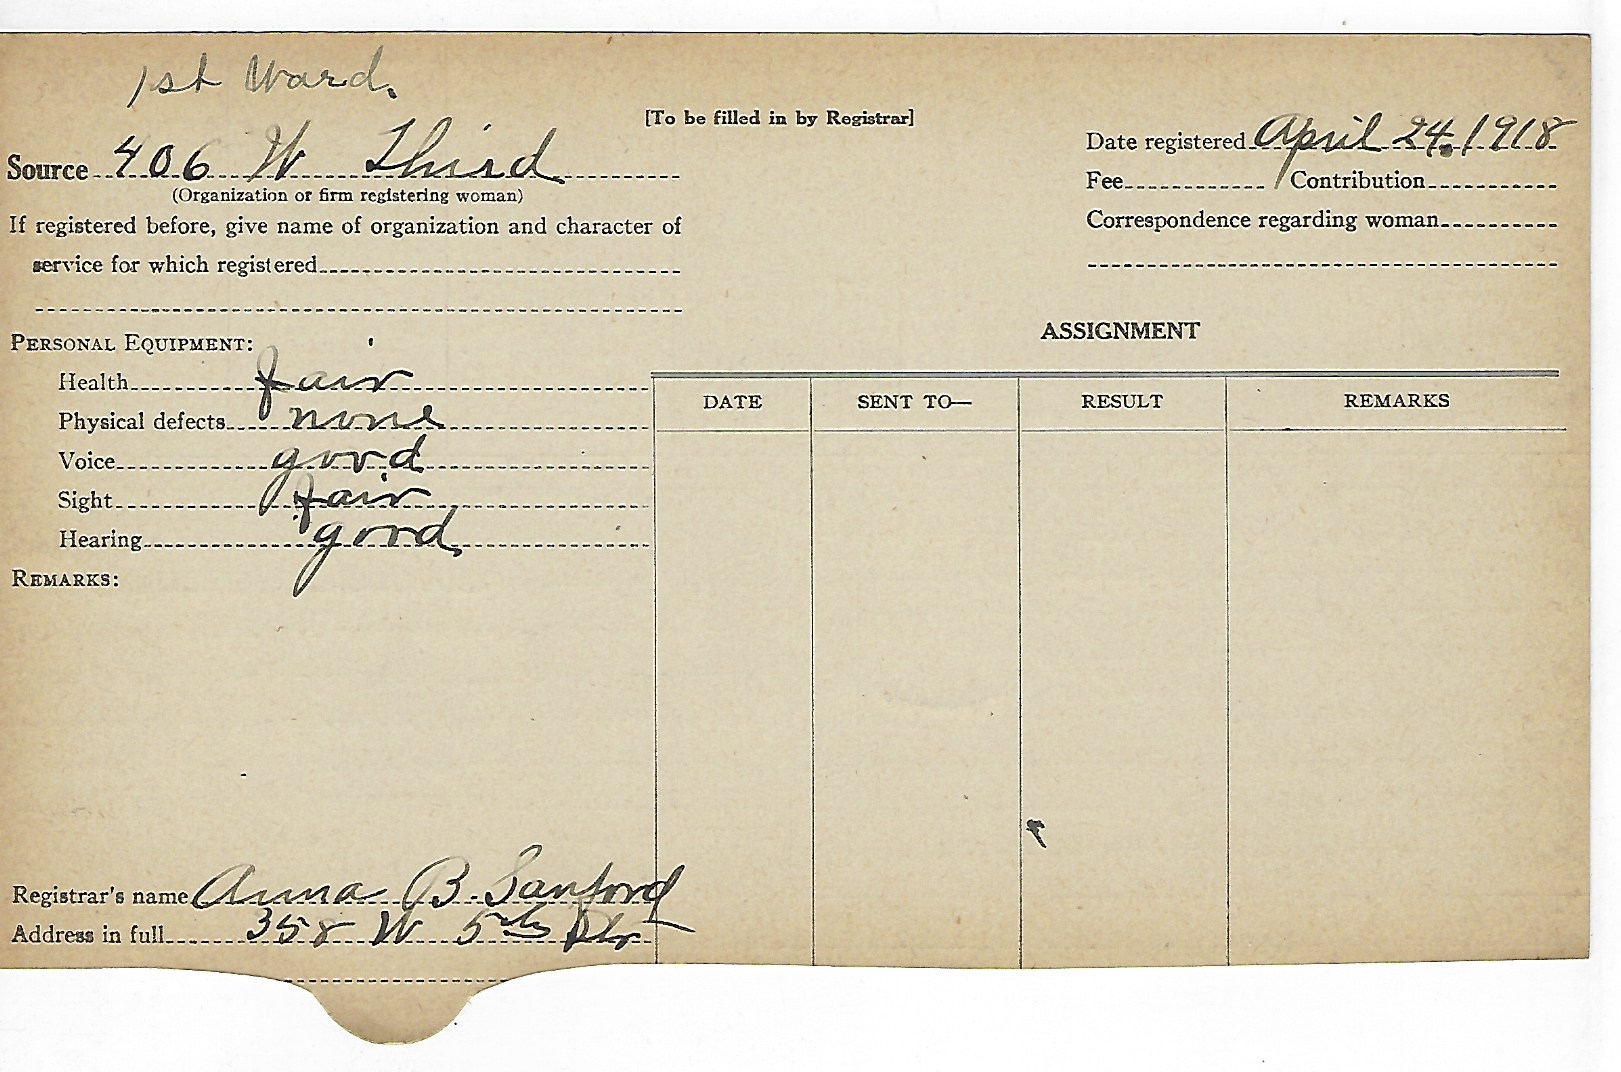 1st Ward.
[To be filled in by Registrar]
Source 406 W Third
(Organization or firm registering woman)
If registered before, give name of organization and character of
service for which registered
Date registered April 24. 1918
Fee Contribution
Correspondence regarding woman
PERSONAL EQUIPMENT:
Health fair
Physical defects none
Voice good
Sight fair
Hearing good
REMARKS:
ASSIGNMENT
DATE SENT TO— RESULT REMARKS
Registrar's name Anna B. Sanford
Address in full 358 W 5th